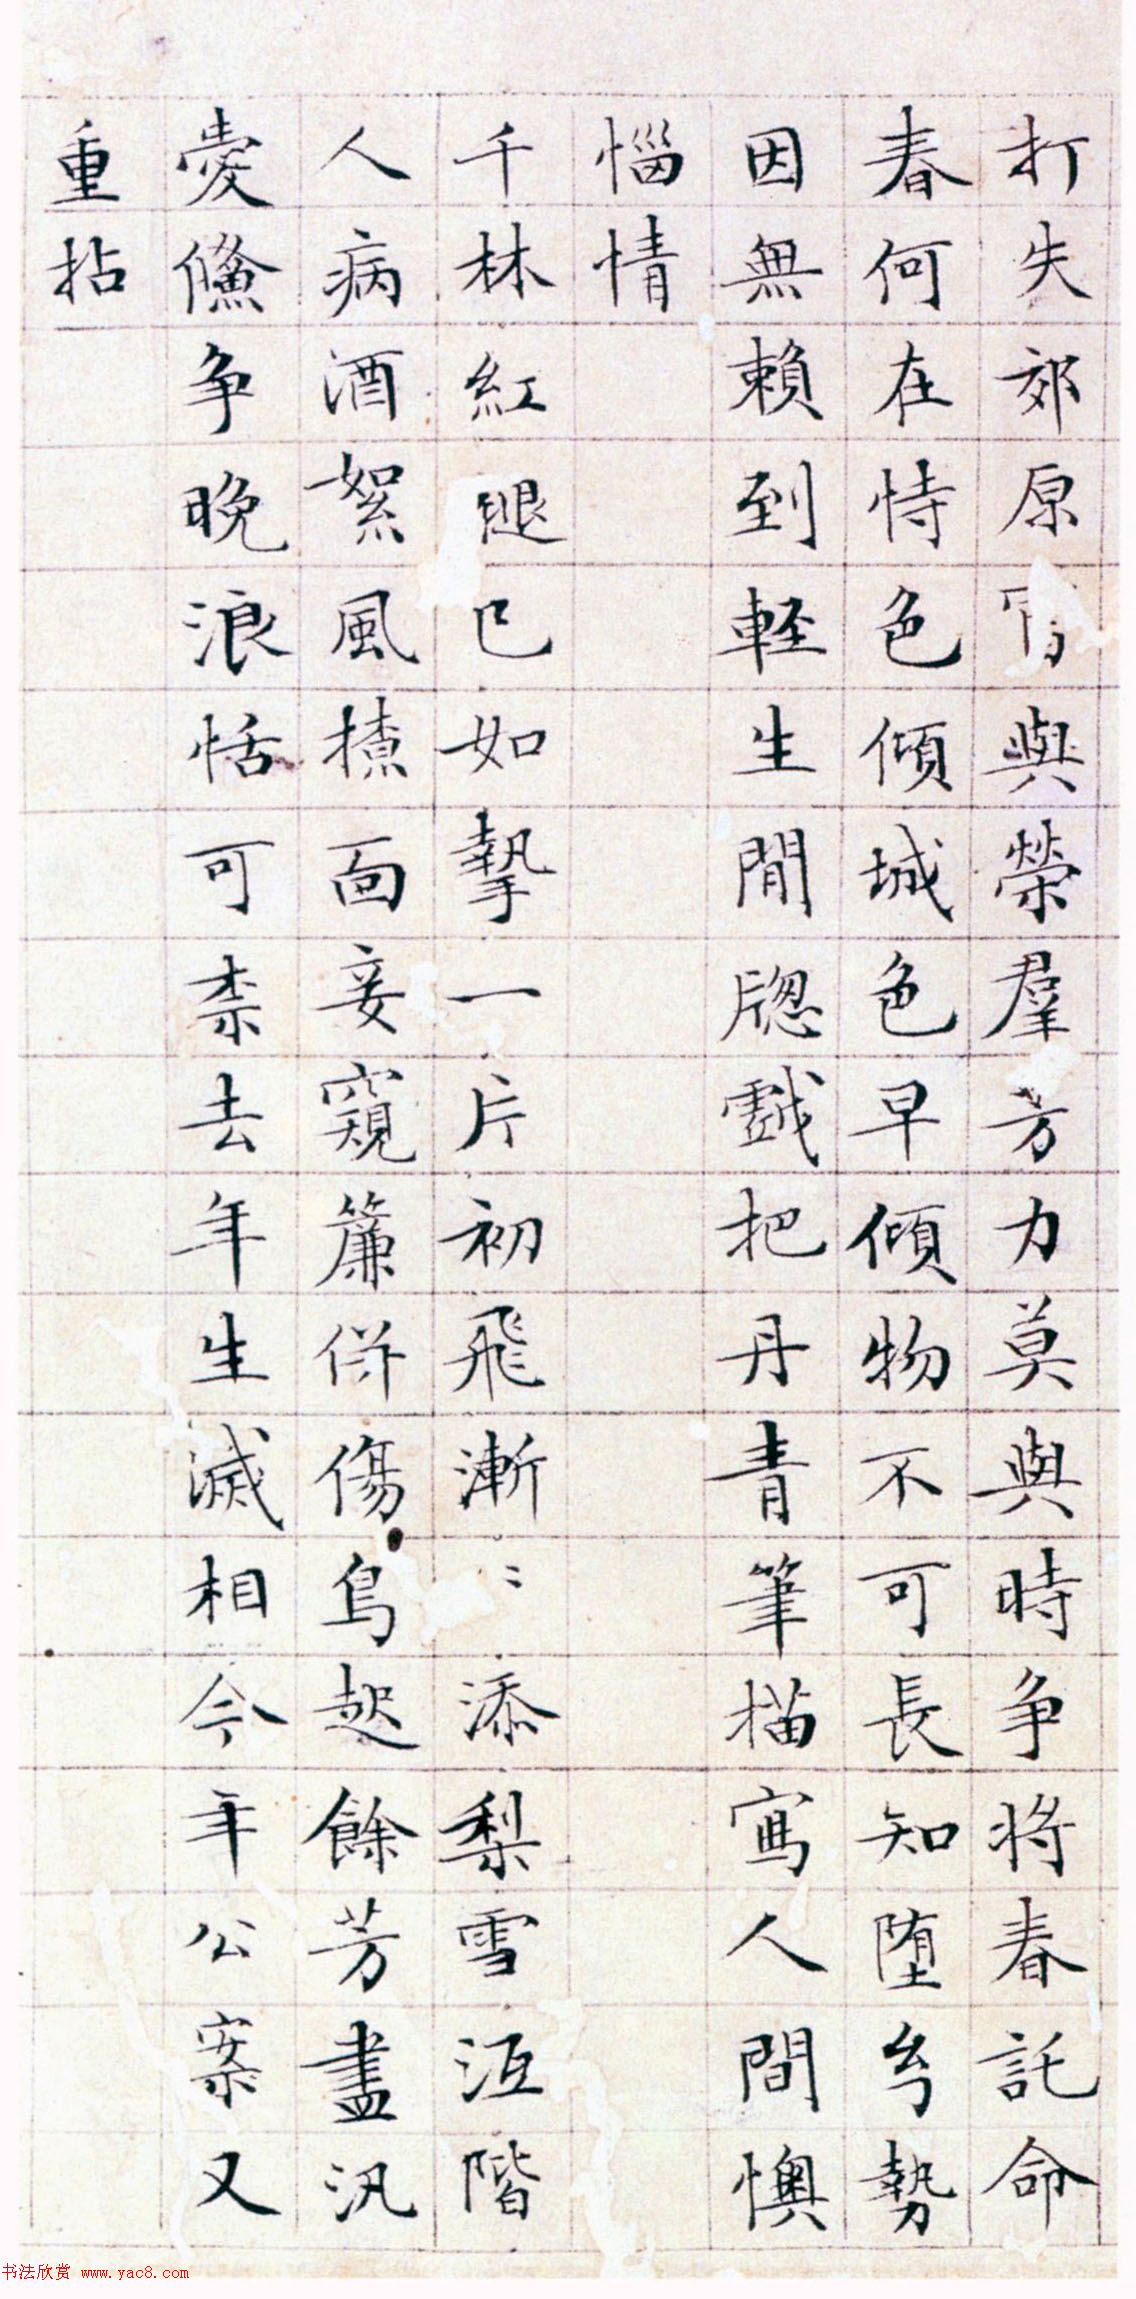 打失郊原𠕅與榮羣芳力莫與時争將春託命
春何在恃色傾城色早傾物不可長知墮𠃵勢
因無賴到輕生閒牕戲把丹青筆描寫人間懊
惱情
千林紅褪已如摯一片初飛漸〻添梨雪沍階
人病酒絮風揍面妾窺簾併傷鳥起餘芳盡汎
愛儵争晚浪恬可柰去年生滅相今年公案又
重拈
书法欣赏 www.yac8.com